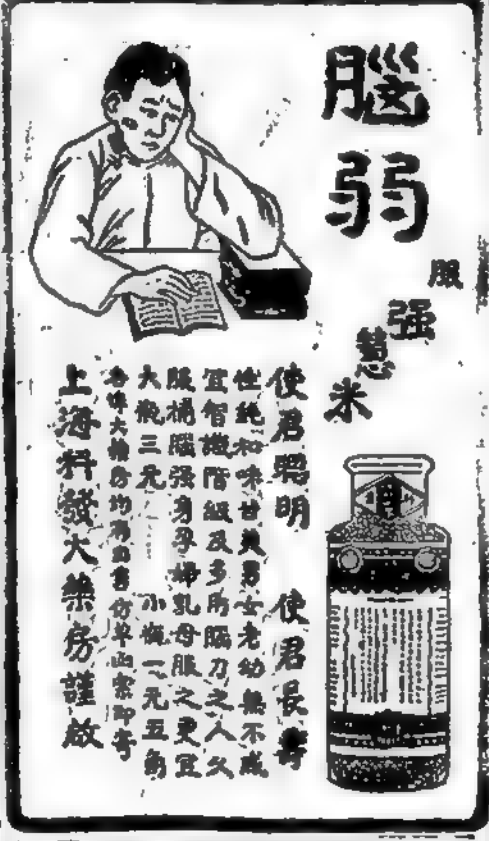 腦弱
服
强
慧
米
使君聰明　使君長壽
性純和味甘美男女老幼無不咸
宜智識階級及多用腦力之人久
服補腦强身孕婦乳母服之更宜
大瓶三元　小瓶一元五角
各埠大藥房均有如書仿單函索即寄
上海科發大藥房謹啟